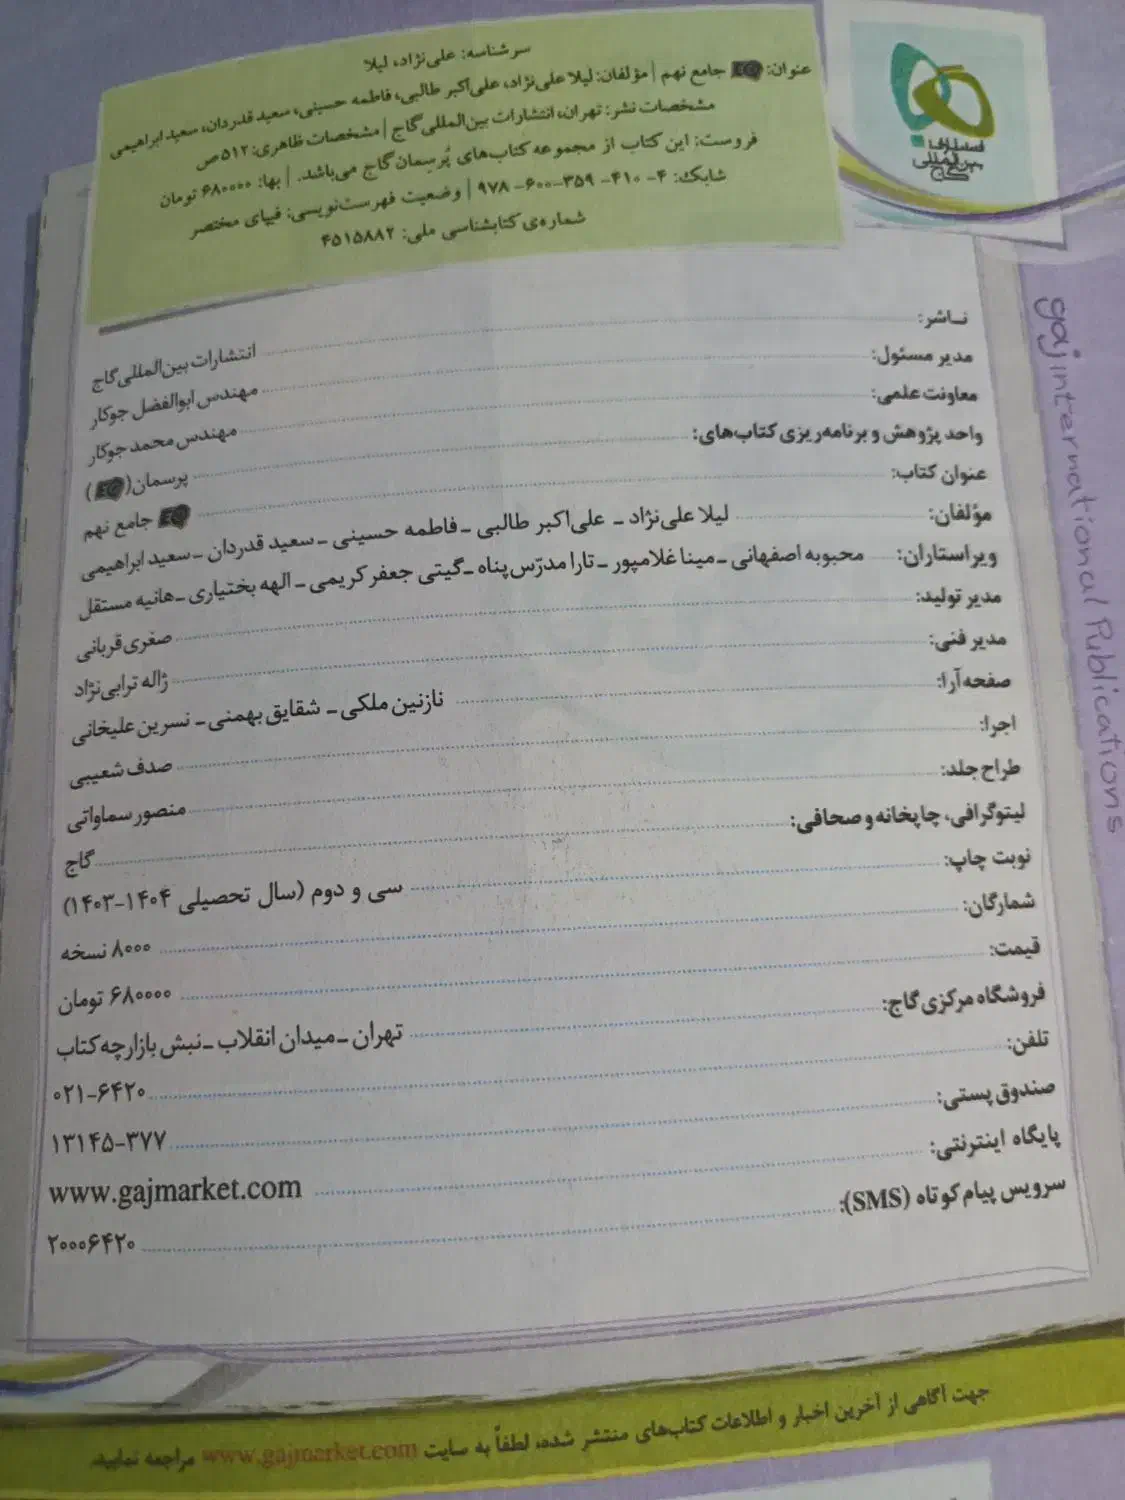 سرشناسه: علی‌نژاد، لیلا
عنوان: EQ جامع نهم | مؤلفان: لیلا علی‌نژاد، علی‌اکبر طالبی، فاطمه حسینی، سعید قدردان، سعید ابراهیمی
مشخصات نشر: تهران، انتشارات بین‌المللی گاج | مشخصات ظاهری: ۵۱۲ ص
فروست: این کتاب از مجموعه کتاب‌های پُرسمان گاج می‌باشد. | بها: ۶۸۰۰۰۰ تومان
شابک: ۴-۴۱۰-۳۵۹-۶۰۰-۹۷۸ | وضعیت فهرست‌نویسی: فیپای مختصر
شماره‌ی کتابشناسی ملی: ۴۵۱۵۸۸۲
انتشارات
بین‌المللی
گاج
gajinternational Publications
ناشر: انتشارات بین‌المللی گاج
مدیر مسئول: مهندس ابوالفضل جوکار
معاونت علمی: مهندس محمد جوکار
واحد پژوهش و برنامه‌ریزی کتاب‌های: پرسمان (EQ)
عنوان کتاب: EQ جامع نهم
مؤلفان: لیلا علی‌نژاد - علی‌اکبر طالبی - فاطمه حسینی - سعید قدردان - سعید ابراهیمی
ویراستاران: محبوبه اصفهانی - مینا غلامپور - تارا مدرّس‌پناه - گیتی جعفرکریمی - الهه بختیاری - هانیه مستقل
مدیر تولید: صغری قربانی
مدیر فنی: ژاله ترابی‌نژاد
صفحه‌آرا: نازنین ملکی - شقایق بهمنی - نسرین علیخانی
اجرا: صدف شعیبی
طراح جلد: منصور سماواتی
لیتوگرافی، چاپخانه و صحافی: گاج
نوبت چاپ: سی و دوم (سال تحصیلی ۱۴۰۴-۱۴۰۳)
شمارگان: ۸۰۰۰ نسخه
قیمت: ۶۸۰۰۰۰ تومان
فروشگاه مرکزی گاج: تهران - میدان انقلاب - نبش بازارچه کتاب
تلفن: ۰۲۱-۶۴۲۰
صندوق پستی: ۱۳۱۴۵-۳۷۷
پایگاه اینترنتی: www.gajmarket.com
سرویس پیام کوتاه (SMS): ۲۰۰۰۶۴۲۰
جهت آگاهی از آخرین اخبار و اطلاعات کتاب‌های منتشر شده، لطفاً به سایت www.gajmarket.com مراجعه نمایید.